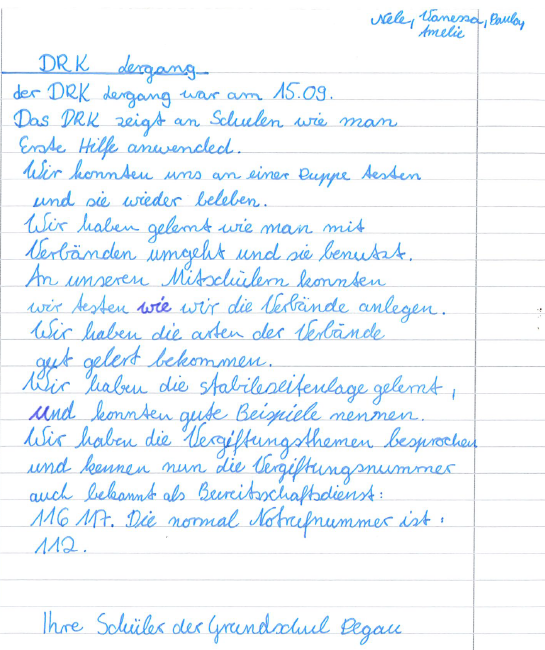 Nele, Vanessa, Paula,
Amelie
DRK Lergang
der DRK Lergang war am 15.09.
Das DRK zeigt an Schulen wie man
Erste Hilfe anwended.
Wir konnten uns an einer Puppe testen
und sie wieder beleben.
Wir haben gelernt wie man mit
Verbänden umgeht und sie benutzt.
An unseren Mitschülern konnten
wir testen wie wir die Verbände anlegen.
Wir haben die arten der Verbände
gut gelert bekommen.
Wir haben die stabileseitenlage gelernt,
und konnten gute Beispiele nennen.
Wir haben die Vergiftungsthemen besprochen
und kennen nun die Vergiftungsnummer
auch bekannt als Bereitsschaftsdienst:
116 117. Die normal Notrufnummer ist:
112.
Ihre Schüler der Grundschul Pegau